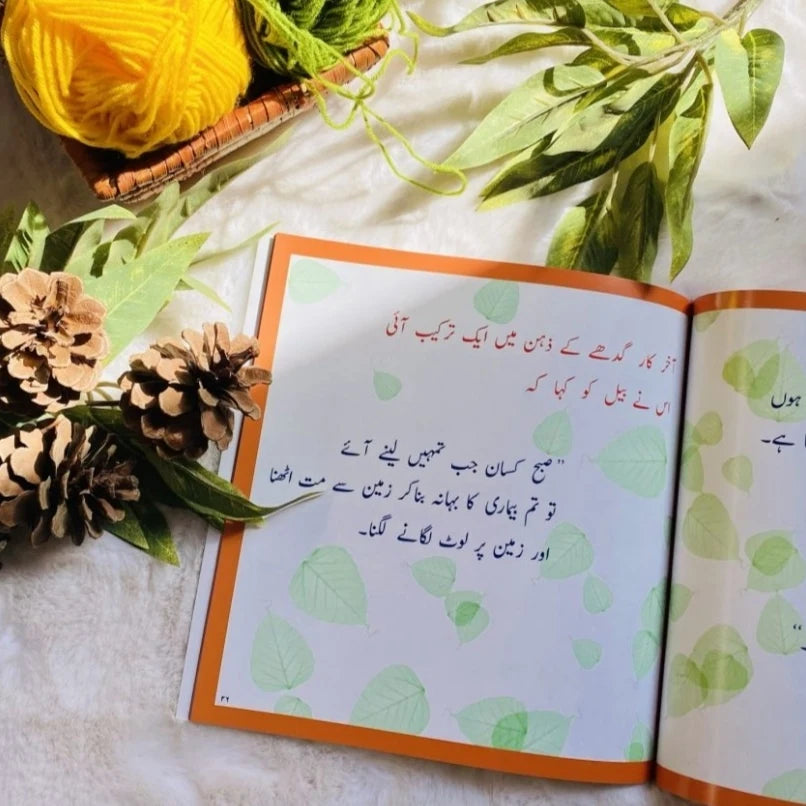 آخر کار گدھے کے ذہن میں ایک ترکیب آئی
اس نے بیل کو کہا کہ
”صبح کسان جب تمہیں لینے آئے
تو تم بیماری کا بہانہ بناکر زمین سے مت اٹھنا
اور زمین پر لوٹ لگانے لگنا۔
۲۶
ہوں
ہے۔
“